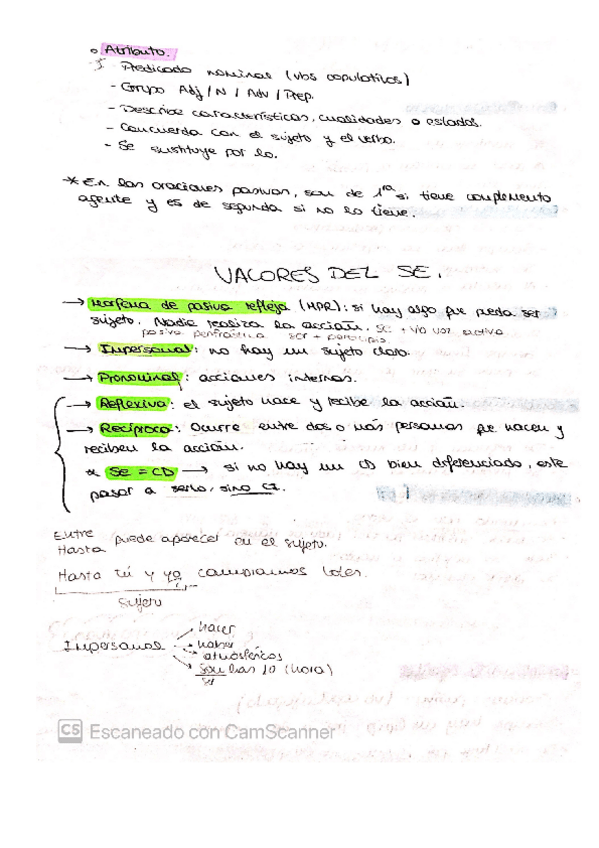 Atributo.
Predicado nominal (vbs copulativos)
- Grupo Adj / N / Adv / Prep.
- Describe características, cualidades o estados.
- Concuerda con el sujeto y el verbo.
- Se sustituye por lo.
* En las oraciones pasivas, son de 1ra si tiene complemento
agente y es de segunda si no lo tiene.
VALORES DEL SE.
→ Morfema de pasiva refleja (MPR): si hay algo que pueda ser
sujeto. Nadie realiza la acción. Se + vb voz activa
pasiva perifrástica ser + participio
→ Impersonal: no hay un sujeto claro.
→ Pronominal: acciones internas.
→ Reflexivo: el sujeto hace y recibe la acción.
→ Recíproco: Ocurre entre dos o más personas que hacen y
reciben la acción.
* Se = CD → si no hay un CD bien diferenciado, este
pasar a serlo, sino CI.
Entre
Hasta puede aparecer en el sujeto.
Hasta tú y yo cambiamos
Sujeto
Impersonal → hacer
→ haber
→ atmosféricos
→ son las 10 (hora)
ser
CS Escaneado con CamScanner